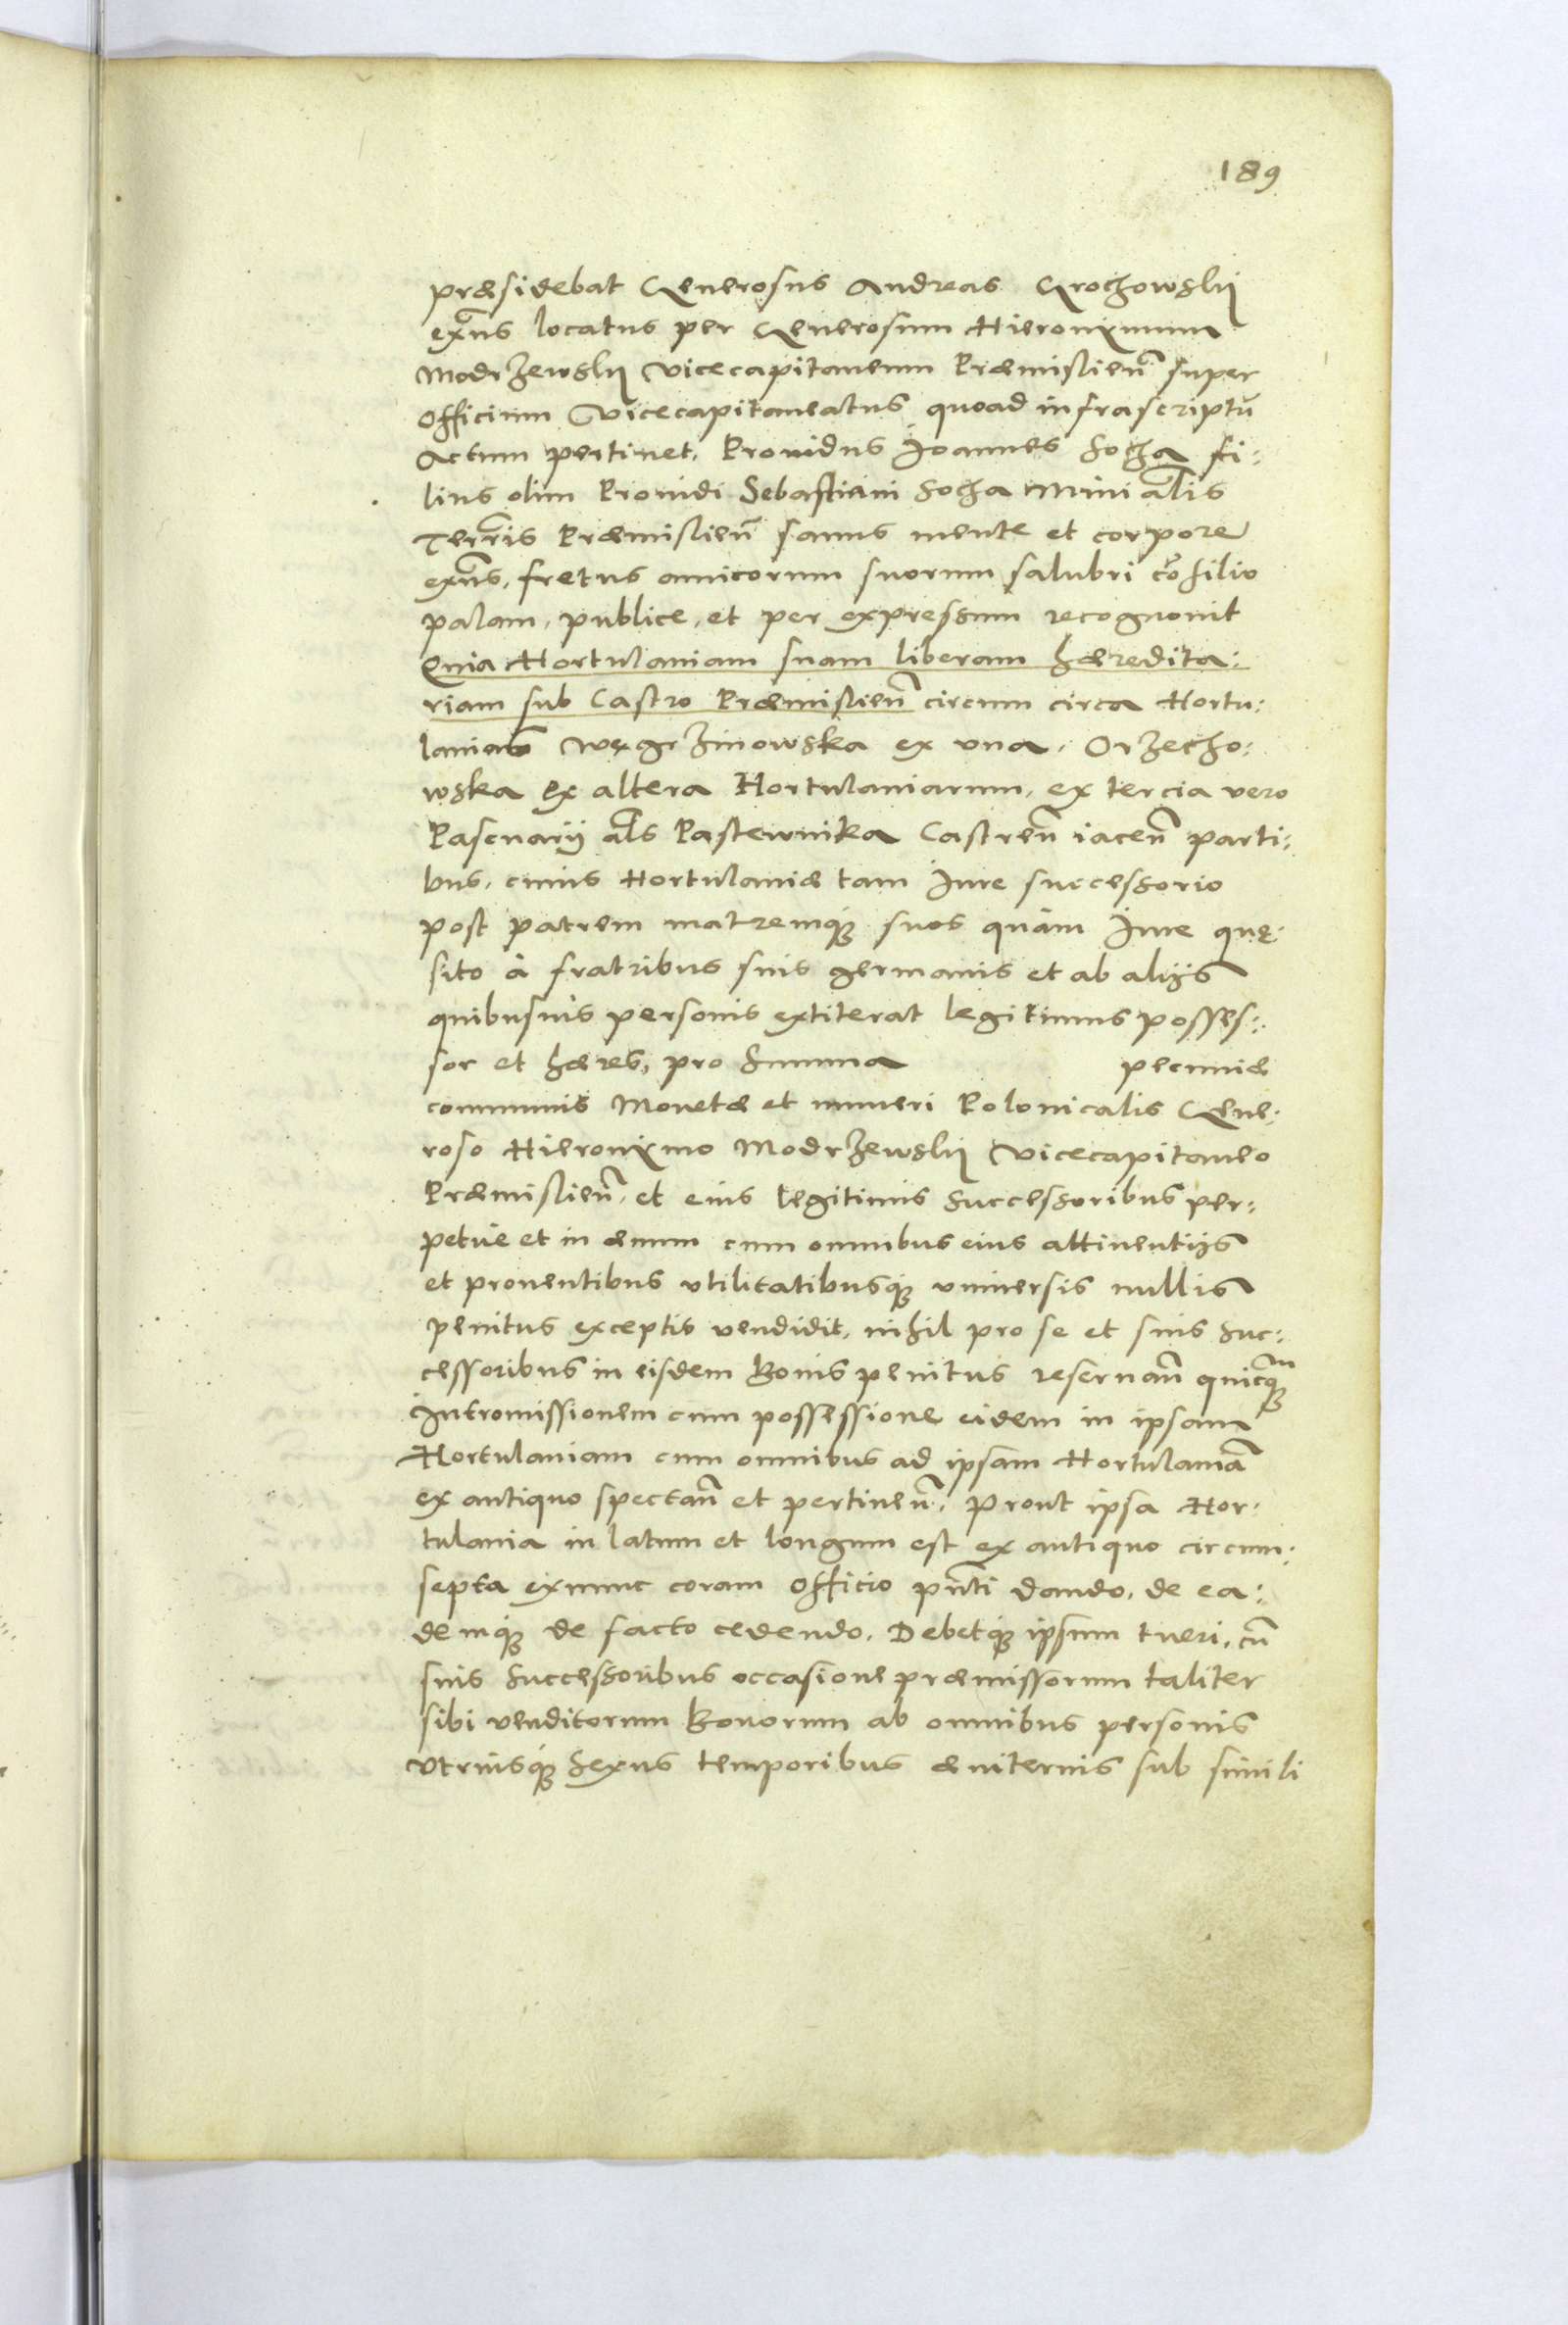 189
præsidebat Generosus Andreas Grochowskÿ
exn̄s locatus per Generosum Hieronÿmum
Modrzewskÿ Vicecapitaneum Præmislien̄ super
officium Vicecapitaneatus quoad infrascriptū
Actum pertinet. Prouidus Joannes Socha fi:
lius olim Prouidi Sebastiani Socha Mini alis
Terris Præmislien̄ sanus mente et corpore
exn̄s, fretus amicorum suorum salubri cōsilio
palam, publice, et per expressum recognouit
Quia Hortulaniam suam liberam hæredita:
riam sub Castro Præmislien̄ circum circa Hortu:
lanias Węgrzinowska ex vna, Orzecho:
wska ex altera Hortulaniarum, ex tercia vero
Pascuarÿ al̄s Pastewnika Castren̄ iacen̄ parti:
bus, cuius Hortulaniæ tam Jure successorio
post patrem matremq́ꝫ suos quàm Jure quę:
sito à fratribus suis germanis et ab alijs
quibusuis personis extiterat legitimus posses:
sor et hæres, pro Summa pecuniæ
communis Monetæ et numeri Polonicalis Gene:
roso Hieronÿmo Modrzewskÿ Vicecapitaneo
Præmislien̄, et eius legitimis Successoribus per:
petuè et in æuum cum omnibus eius attinentijs
et prouentibus vtilitatibusq́ꝫ vniuersis nullis
penitus exceptis vendidit, nihil pro se et suis Suc:
cessoribus in eisdem Bonis penitus reseruan̄ quicq̄ꝫ
Intromissionem cum possessione eidem in ipsam
Hortulaniam cum omnibus ad ipsam Hortulaniā
ex antiquo spectan̄ et pertinen̄. Prout ipsa Hor:
tulania in latum et longum est ex antiquo circum:
septa exnunc coram Officio pn̄ti dando, de ea:
demq́ꝫ de facto cedendo. Debetq́ꝫ ipsum tueri, cū
suis Successoribus occasione præmissorum taliter
sibi venditorum Bonorum ab omnibus personis
vtriusq́ꝫ Sexus temporibus æuiternis sub simili